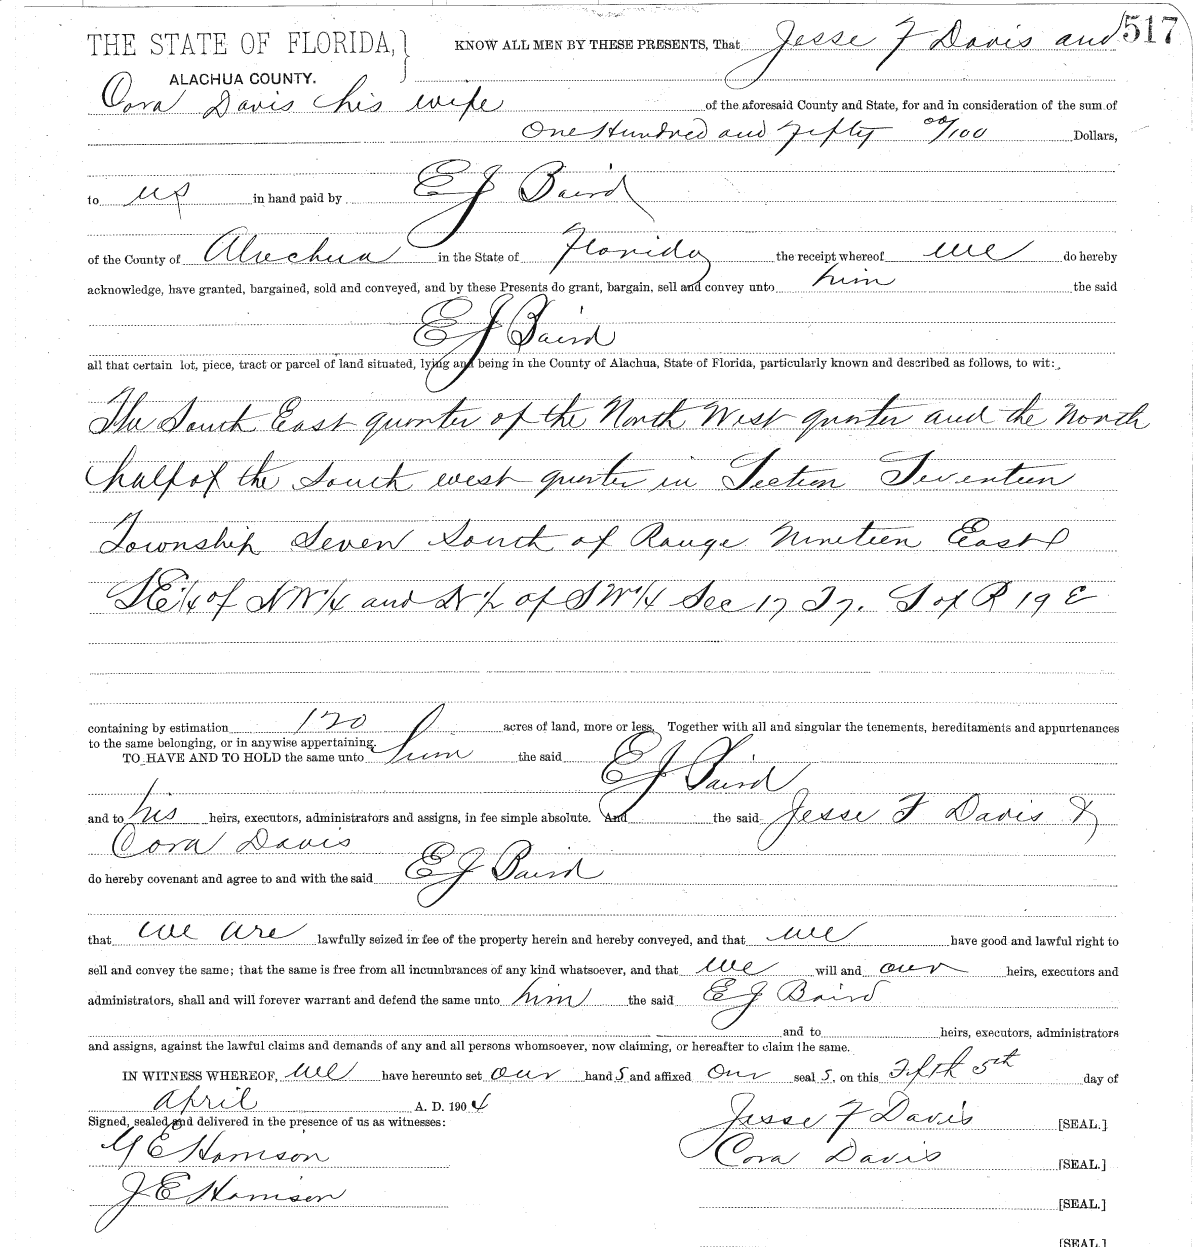 517
THE STATE OF FLORIDA, } KNOW ALL MEN BY THESE PRESENTS, That Jesse F Davis and
ALACHUA COUNTY.
Cora Davis his wife of the aforesaid County and State, for and in consideration of the sum of
One Hundred and Fifty 00/100 Dollars,
to us in hand paid by E J Baird
of the County of Alachua in the State of Florida the receipt whereof we do hereby
acknowledge, have granted, bargained, sold and conveyed, and by these Presents do grant, bargain, sell and convey unto him the said
E J Baird
all that certain lot, piece, tract or parcel of land situated, lying and being in the County of Alachua, State of Florida, particularly known and described as follows, to wit:
The South East quarter of the North West quarter and the North
half of the South west quarter in Section Seventeen
Township Seven South of Range Nineteen East
SE 1/4 of NW 1/4 and N 1/2 of SW 1/4 Sec 17 T 7. S of R 19 E
containing by estimation 120 acres of land, more or less. Together with all and singular the tenements, hereditaments and appurtenances
to the same belonging, or in anywise appertaining.
TO HAVE AND TO HOLD the same unto him the said E J Baird
and to his heirs, executors, administrators and assigns, in fee simple absolute. And the said Jesse F Davis &
Cora Davis
do hereby covenant and agree to and with the said E J Baird
that we are lawfully seized in fee of the property herein and hereby conveyed, and that we have good and lawful right to
sell and convey the same; that the same is free from all incumbrances of any kind whatsoever, and that we will and our heirs, executors and
administrators, shall and will forever warrant and defend the same unto him the said E J Baird
and to heirs, executors, administrators
and assigns, against the lawful claims and demands of any and all persons whomsoever, now claiming, or hereafter to claim the same.
IN WITNESS WHEREOF, we have hereunto set our hand s and affixed our seal s, on this Fifth 5th day of
April A. D. 190 4
Signed, sealed and delivered in the presence of us as witnesses: Jesse F Davis [SEAL.]
G E Hamison Cora Davis [SEAL.]
J E Hamison [SEAL.]
[SEAL.]